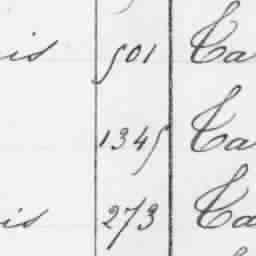 is 501 Ca
1345 Ca
is 273 Ca